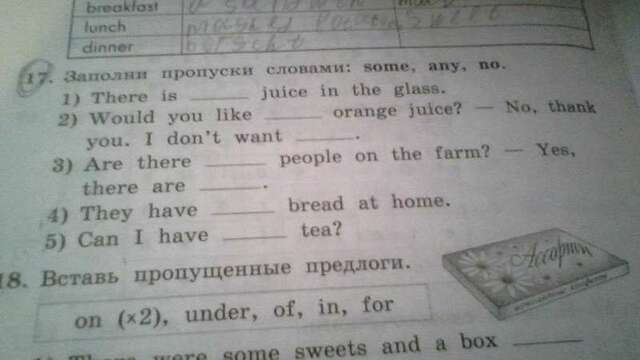 breakfast a sandwich
lunch mashed potatoes sweet
dinner borscht
17. Заполни пропуски словами: some, any, no.
1) There is ______ juice in the glass.
2) Would you like ______ orange juice? — No, thank
you. I don't want ______.
3) Are there ______ people on the farm? — Yes,
there are ______.
4) They have ______ bread at home.
5) Can I have ______ tea?
18. Вставь пропущенные предлоги.
Ассорти
on (×2), under, of, in, for
were some sweets and a box ______